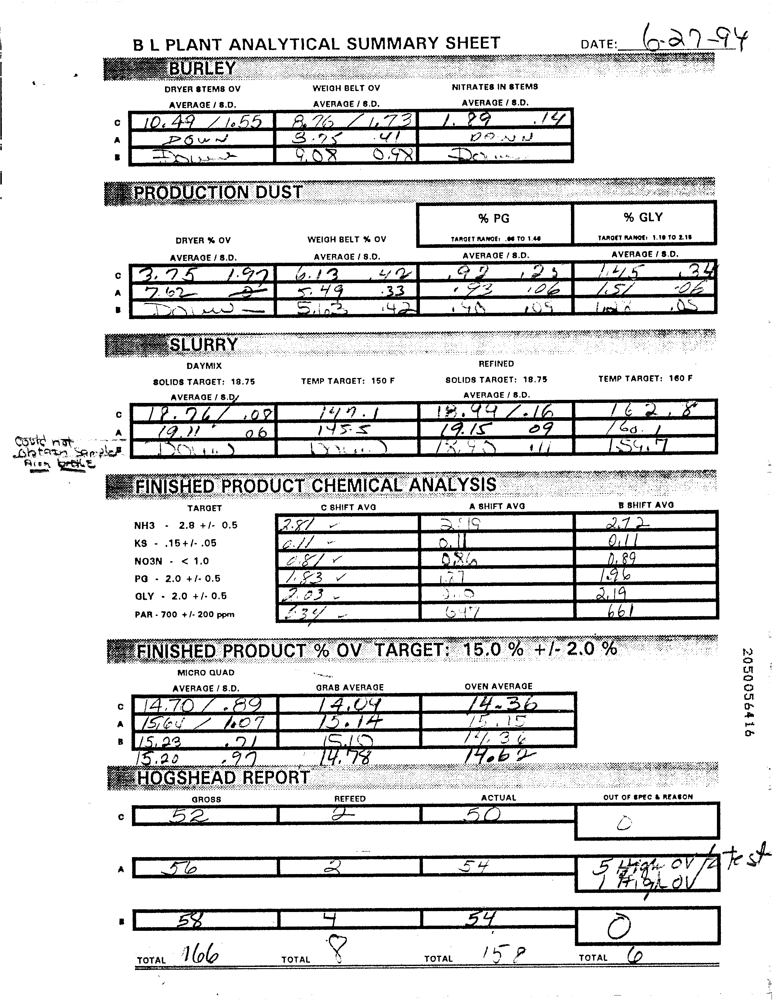 B L PLANT ANALYTICAL SUMMARY SHEET DATE: 6-27-94
BURLEY
DRYER STEMS OV WEIGH BELT OV NITRATES IN STEMS
AVERAGE / S.D. AVERAGE / S.D. AVERAGE / S.D.
C 10.49 / 1.55 8.76 / 1.73 1.89 .14
A DOWN 3.75 .41 DOWN
B Down 9.08 0.98 Down
PRODUCTION DUST
% PG % GLY
DRYER % OV WEIGH BELT % OV TARGET RANGE: .86 TO 1.46 TARGET RANGE: 1.18 TO 2.18
AVERAGE / S.D. AVERAGE / S.D. AVERAGE / S.D. AVERAGE / S.D.
C 3.75 1.97 6.13 .42 .92 .25 1.45 .34
A 7.62 5.49 .33 .93 .06 1.51 .06
B Down — .42 .09 .05
SLURRY
DAYMIX REFINED
SOLIDS TARGET: 18.75 TEMP TARGET: 150 F SOLIDS TARGET: 18.75 TEMP TARGET: 160 F
AVERAGE / S.D. AVERAGE / S.D.
C 18.76 / .08 147.1 18.94 / .16 162.8
A 19.11 06 145.5 19.15 09 160.1
B Down Down 18.90 .11 159.7
Could not
obtain Sample
FINISHED PRODUCT CHEMICAL ANALYSIS
TARGET C SHIFT AVG A SHIFT AVG B SHIFT AVG
NH3 - 2.8 +/- 0.5 2.81 ✓ 2.72
KS - .15+/- .05 0.11 0.11 0.11
NO3N - < 1.0 0.81 ✓ 0.86 0.89
PG - 2.0 +/- 0.5 1.83 ✓ 1.96
GLY - 2.0 +/- 0.5 2.03 2.19
PAR - 700 +/- 200 ppm 634 647 661
FINISHED PRODUCT % OV TARGET: 15.0 % +/- 2.0 %
MICRO QUAD
AVERAGE / S.D. GRAB AVERAGE OVEN AVERAGE
C 14.70 / .89 14.04 14.36
A 15.64 / 1.07 15.14 15.15
B 15.23 .71 15.10 14.36
15.20 .97 14.78 14.62
HOGSHEAD REPORT
GROSS REFEED ACTUAL OUT OF SPEC & REASON
C 52 2 50 0
A 56 2 54 5 High OV test
1 High OV
B 58 4 54 0
TOTAL 166 TOTAL 8 TOTAL 158 TOTAL 6
2050056416